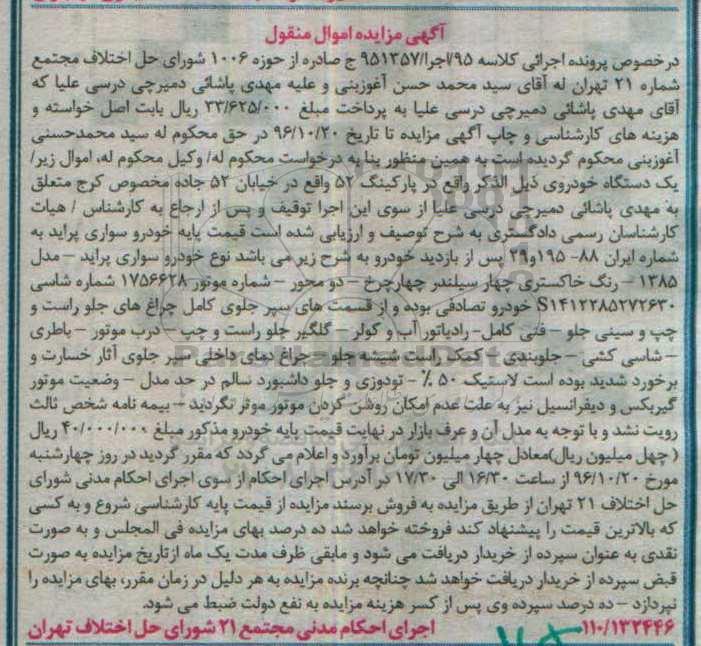 آگهی مزایده اموال منقول
درخصوص پرونده اجرائی کلاسه ۹۵/اجرا/۹۵۱۳۵۷ ج صادره از حوزه ۱۰۰۶ شورای حل اختلاف مجتمع
شماره ۲۱ تهران له آقای سید محمد حسن آغوزبنی و علیه مهدی پاشائی دمیرچی درسی علیا که
آقای مهدی پاشائی دمیرچی درسی علیا به پرداخت مبلغ ۳۳/۶۲۵/۰۰۰ ریال بابت اصل خواسته و
هزینه های کارشناسی و چاپ آگهی مزایده تا تاریخ ۹۶/۱۰/۲۰ در حق محکوم له سید محمدحسنی
آغوزبنی محکوم گردیده است به همین منظور بنا به درخواست محکوم له/ وکیل محکوم له، اموال زیر/
یک دستگاه خودروی ذیل الذکر واقع در پارکینگ ۵۲ واقع در خیابان ۵۲ جاده مخصوص کرج متعلق
به مهدی پاشائی دمیرچی درسی علیا از سوی این اجرا توقیف و پس از ارجاع به کارشناس / هیات
کارشناسان رسمی دادگستری به شرح توصیف و ارزیابی شده است قیمت پایه خودرو سواری پراید به
شماره ایران ۸۸- ۱۹۵و۲۹ پس از بازدید خودرو به شرح زیر می باشد نوع خودرو سواری پراید – مدل
۱۳۸۵ – رنگ خاکستری چهار سیلندر چهارچرخ – دو محور – شماره موتور ۱۷۵۶۶۲۸ شماره شاسی
S۱۴۱۲۲۸۵۲۷۲۶۳۰ خودرو تصادفی بوده و از قسمت های سپر جلوی کامل چراغ های جلو راست و
چپ و سینی جلو – فنی کامل- رادیاتور آب و کولر – گلگیر جلو راست و چپ – درب موتور – باطری
– شاسی کشی – جلوبندی – کمک راست شیشه جلو – چراغ دمای داخلی سپر جلوی آثار خسارت و
برخورد شدید بوده است لاستیک ۵۰ ٪ – تودوزی و جلو داشبورد سالم در حد مدل – وضعیت موتور
گیربکس و دیفرانسیل نیز به علت عدم امکان روشن کردن موتور موثر نگردید – بیمه نامه شخص ثالث
رویت نشد و با توجه به مدل آن و عرف بازار در نهایت قیمت پایه خودرو مذکور مبلغ ۴۰/۰۰۰/۰۰۰ ریال
( چهل میلیون ریال)معادل چهار میلیون تومان برآورد و اعلام می گردد که مقرر گردید در روز چهارشنبه
مورخ ۹۶/۱۰/۲۰ از ساعت ۱۶/۳۰ الی ۱۷/۳۰ در آدرس اجرای احکام از سوی اجرای احکام مدنی شورای
حل اختلاف ۲۱ تهران از طریق مزایده به فروش برسند مزایده از قیمت پایه کارشناسی شروع و به کسی
که بالاترین قیمت را پیشنهاد کند فروخته خواهد شد ده درصد بهای مزایده فی المجلس و به صورت
نقدی به عنوان سپرده از خریدار دریافت می شود و مابقی ظرف مدت یک ماه ازتاریخ مزایده به صورت
قبض سپرده از خریدار دریافت خواهد شد چنانچه برنده مزایده به هر دلیل در زمان مقرر، بهای مزایده را
نپردازد – ده درصد سپرده وی پس از کسر هزینه مزایده به نفع دولت ضبط می شود.
۱۱۰/۱۳۲۴۴۶ اجرای احکام مدنی مجتمع ۲۱ شورای حل اختلاف تهران